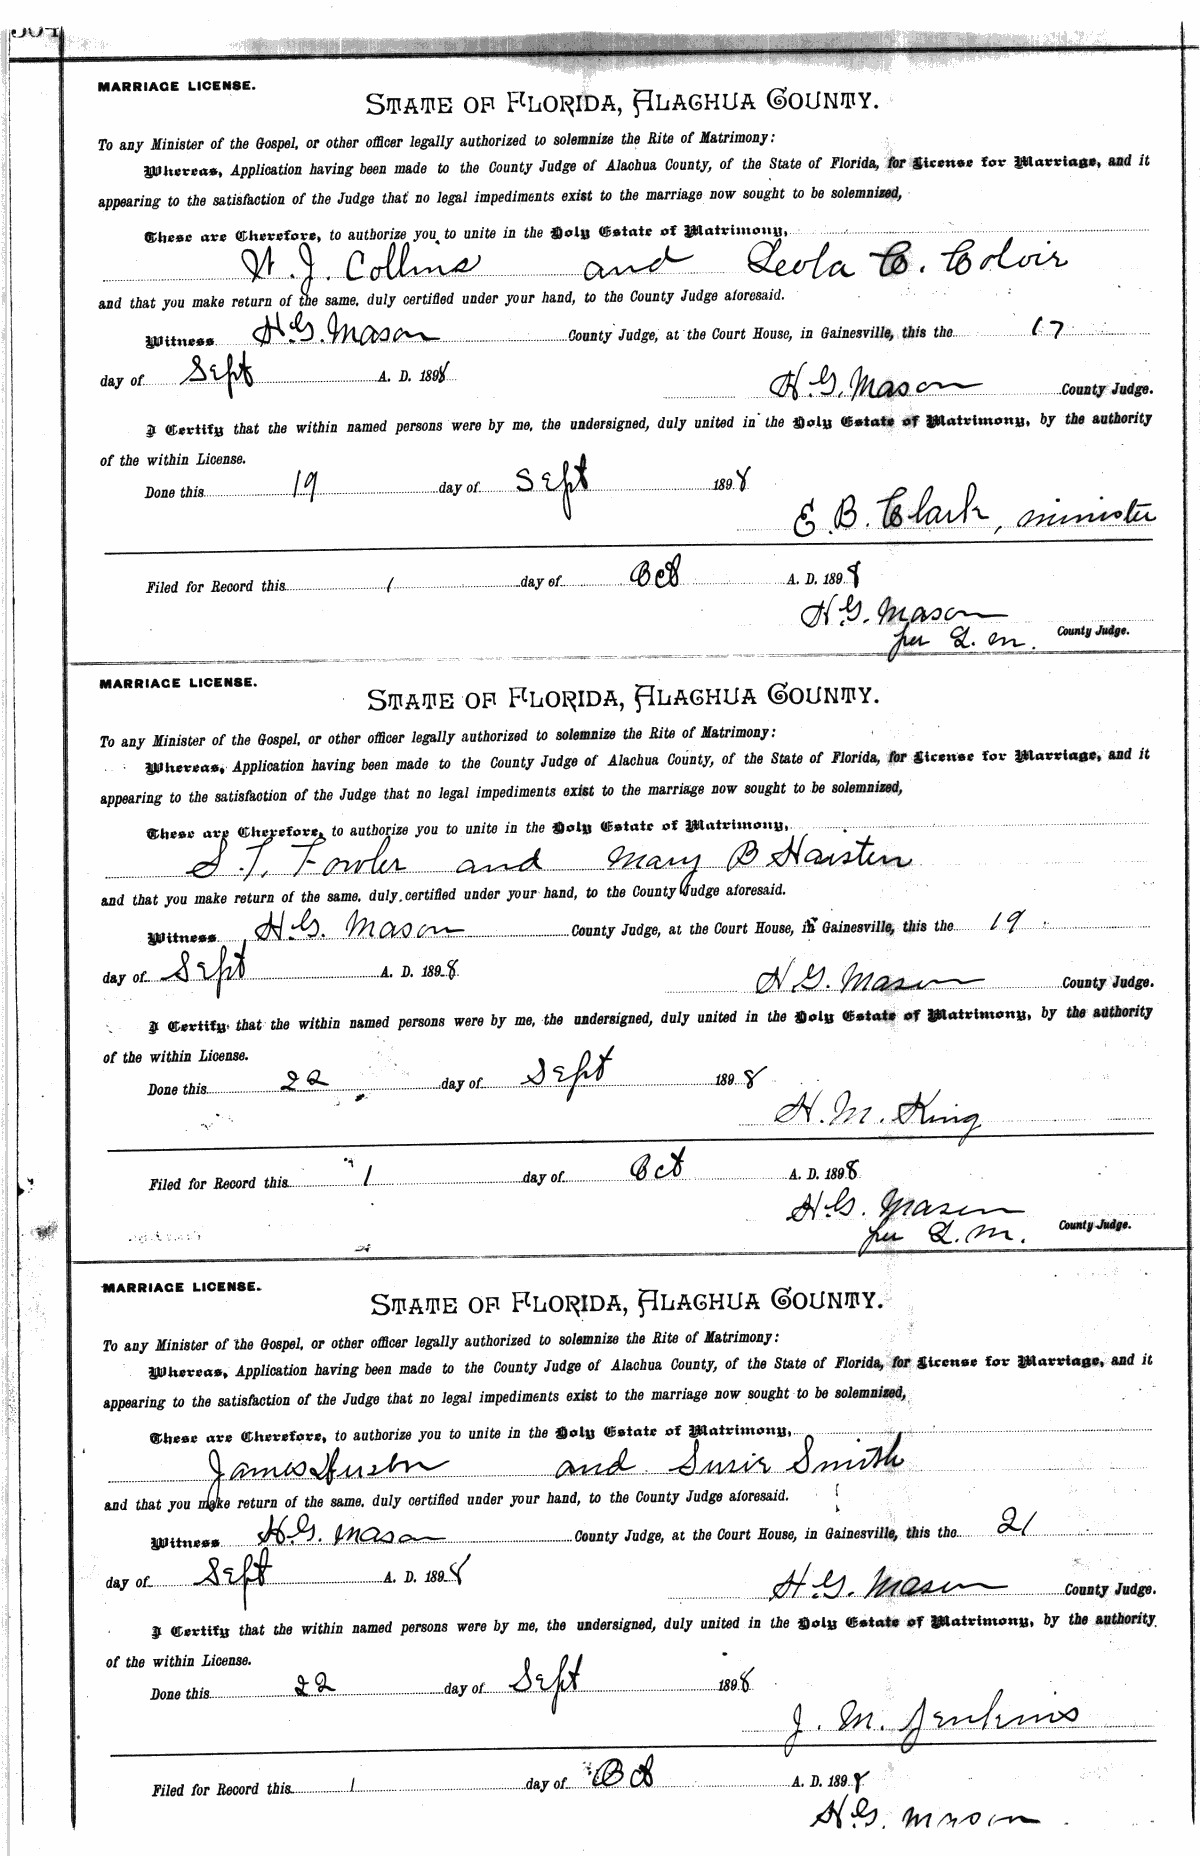 MARRIAGE LICENSE.
STATE OF FLORIDA, ALACHUA COUNTY.
To any Minister of the Gospel, or other officer legally authorized to solemnize the Rite of Matrimony:
Whereas, Application having been made to the County Judge of Alachua County, of the State of Florida, for License for Marriage, and it
appearing to the satisfaction of the Judge that no legal impediments exist to the marriage now sought to be solemnized,
These are Therefore, to authorize you to unite in the Holy Estate of Matrimony,
W. J. Collins and Leola C. Colvir
and that you make return of the same, duly certified under your hand, to the County Judge aforesaid.
Witness H. G. Mason County Judge, at the Court House, in Gainesville, this the 17
day of Sept A. D. 1898
H. G. Mason County Judge.
I Certify that the within named persons were by me, the undersigned, duly united in the Holy Estate of Matrimony, by the authority
of the within License.
Done this 19 day of Sept 1898
E. B. Clark, minister
Filed for Record this 1 day of Oct A. D. 1898
H. G. Mason
per L. M. County Judge.
MARRIAGE LICENSE.
STATE OF FLORIDA, ALACHUA COUNTY.
To any Minister of the Gospel, or other officer legally authorized to solemnize the Rite of Matrimony:
Whereas, Application having been made to the County Judge of Alachua County, of the State of Florida, for License for Marriage, and it
appearing to the satisfaction of the Judge that no legal impediments exist to the marriage now sought to be solemnized,
These are Therefore, to authorize you to unite in the Holy Estate of Matrimony,
S. T. Fowler and Mary B Haisten
and that you make return of the same, duly certified under your hand, to the County Judge aforesaid.
Witness H. G. Mason County Judge, at the Court House, in Gainesville, this the 19
day of Sept A. D. 1898
H G. Mason County Judge.
I Certify that the within named persons were by me, the undersigned, duly united in the Holy Estate of Matrimony, by the authority
of the within License.
Done this 22 day of Sept 1898
H. M. King
Filed for Record this 1 day of Oct A. D. 1898
H. G. Mason
per L. M. County Judge.
MARRIAGE LICENSE.
STATE OF FLORIDA, ALACHUA COUNTY.
To any Minister of the Gospel, or other officer legally authorized to solemnize the Rite of Matrimony:
Whereas, Application having been made to the County Judge of Alachua County, of the State of Florida, for License for Marriage, and it
appearing to the satisfaction of the Judge that no legal impediments exist to the marriage now sought to be solemnized,
These are Therefore, to authorize you to unite in the Holy Estate of Matrimony,
James and Susie Smith
and that you make return of the same, duly certified under your hand, to the County Judge aforesaid.
Witness H. G. Mason County Judge, at the Court House, in Gainesville, this the 21
day of Sept A. D. 1898
H. G. Mason County Judge.
I Certify that the within named persons were by me, the undersigned, duly united in the Holy Estate of Matrimony, by the authority
of the within License.
Done this 22 day of Sept 1898
J. M. Jenkins
Filed for Record this 1 day of Oct A. D. 1898
H. G. Mason